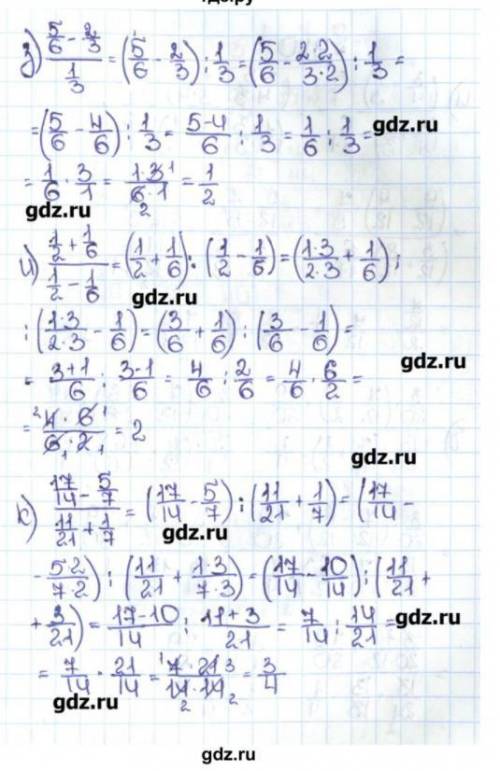 гдз.ру
з) (5/6 - 2/3)/(1/3) = (5/6 - 2/3) : 1/3 = (5/6 - 2·2/3·2) : 1/3 =
= (5/6 - 4/6) : 1/3 = 5-4/6 : 1/3 = 1/6 : 1/3 =
gdz.ru
= 1/6 · 3/1 = 1·3/6·1 = 1/2
gdz.ru
и) (1/2 + 1/6)/(1/2 - 1/6) = (1/2 + 1/6) : (1/2 - 1/6) = (1·3/2·3 + 1/6) :
gdz.ru
: (1·3/2·3 - 1/6) = (3/6 + 1/6) : (3/6 - 1/6) =
gdz.ru
= 3+1/6 : 3-1/6 = 4/6 : 2/6 = 4/6 · 6/2 =
= 4·6/6·2 = 2
gdz.ru
к) (17/14 - 5/7)/(11/21 + 1/7) = (17/14 - 5/7) : (11/21 + 1/7) = (17/14 -
gdz.ru
- 5·2/7·2) : (11/21 + 1·3/7·3) = (17/14 - 10/14) : (11/21 +
+ 3/21) = 17-10/14 : 11+3/21 = 7/14 : 14/21 =
gdz.ru
= 7/14 · 21/14 = 7·21/14·14 = 3/4
gdz.ru
gdz.ru